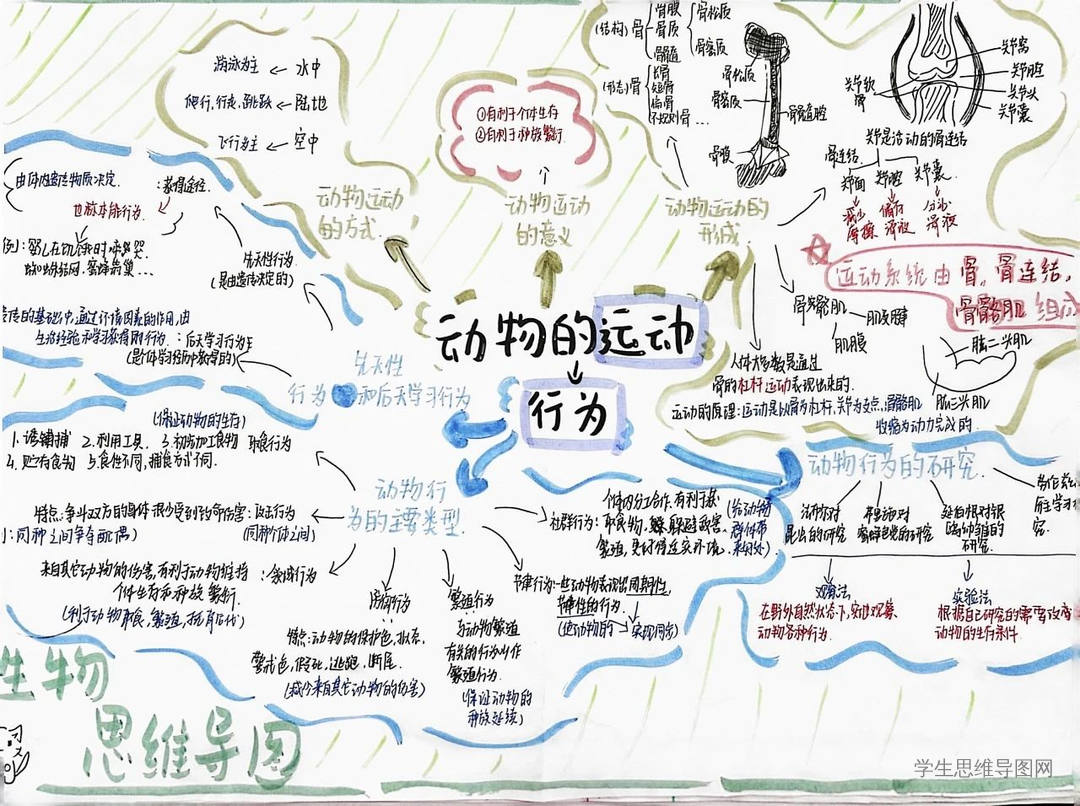 动物的运动
行为
动物运动
的方式
游泳为主 ← 水中
爬行,行走,跳跃 ← 陆地
飞行为主 ← 空中
动物运动
的意义
①有利于个体生存
②有利于种族繁衍
动物运动的
形成
(结构)骨
骨膜
骨质
骨髓
骨松质
骨密质
(形态)骨
长骨
短骨
扁骨
不规则骨…
骨松质
骨密质
骨膜
骨髓腔
关节软
骨
关节窝
关节腔
关节头
关节囊
关节是活动的骨连结
骨连结
关节面
关节腔
关节囊
减少
摩擦
储存
滑液
分泌
滑液
运动系统由骨,骨连结,
骨骼肌 组成
骨骼肌
肌肉腱
肌腹
肱二头肌
肱三头肌
人体大多数是通过
骨的杠杆运动表现出来的.
运动的原理:运动是以骨为杠杆,关节为支点,骨骼肌
收缩为动力完成的.
行为
先天性
和后天学习行为
由体内遗传物质决定.
:获得途径
也称本能行为.
先天性行为
(是由遗传决定的)
蜘蛛结网.蜜蜂筑巢…
的基础中,通过环境因素的作用,由
生活经验和学习获得的行为.
:后天学习行为
动物行
为的主要类型
(保证动物的生存)
2.利用工具.
3.初步加工食物
取食行为
4.贮存食物
5.食性不同,捕食方式不同.
特点:争斗双方的身体很少受到致命伤害
:攻击行为
:同种之间争夺配偶)
(同种个体之间)
来自其它动物的伤害,有利于动物维持
个体生存和种族繁衍.
防御行为
特点:动物的保护色,拟态,
警戒色,假死,逃跑,断尾.
(减少来自其它动物的伤害)
繁殖行为
与动物繁殖
有关的行为叫作
繁殖行为.
(保证动物的
种族延续)
节律行为:一些动物表现出周期性,
节律性的行为.
社群行为:
动物行为的研究
法布尔对
昆虫的研究
弗里施对
蜜蜂色觉的研究
研究.
观察法
在野外自然状态下,实地观察,
动物各种行为.
实验法
根据自己研究的需要改变
动物的生存条件
生物
思维导图
学生思维导图网